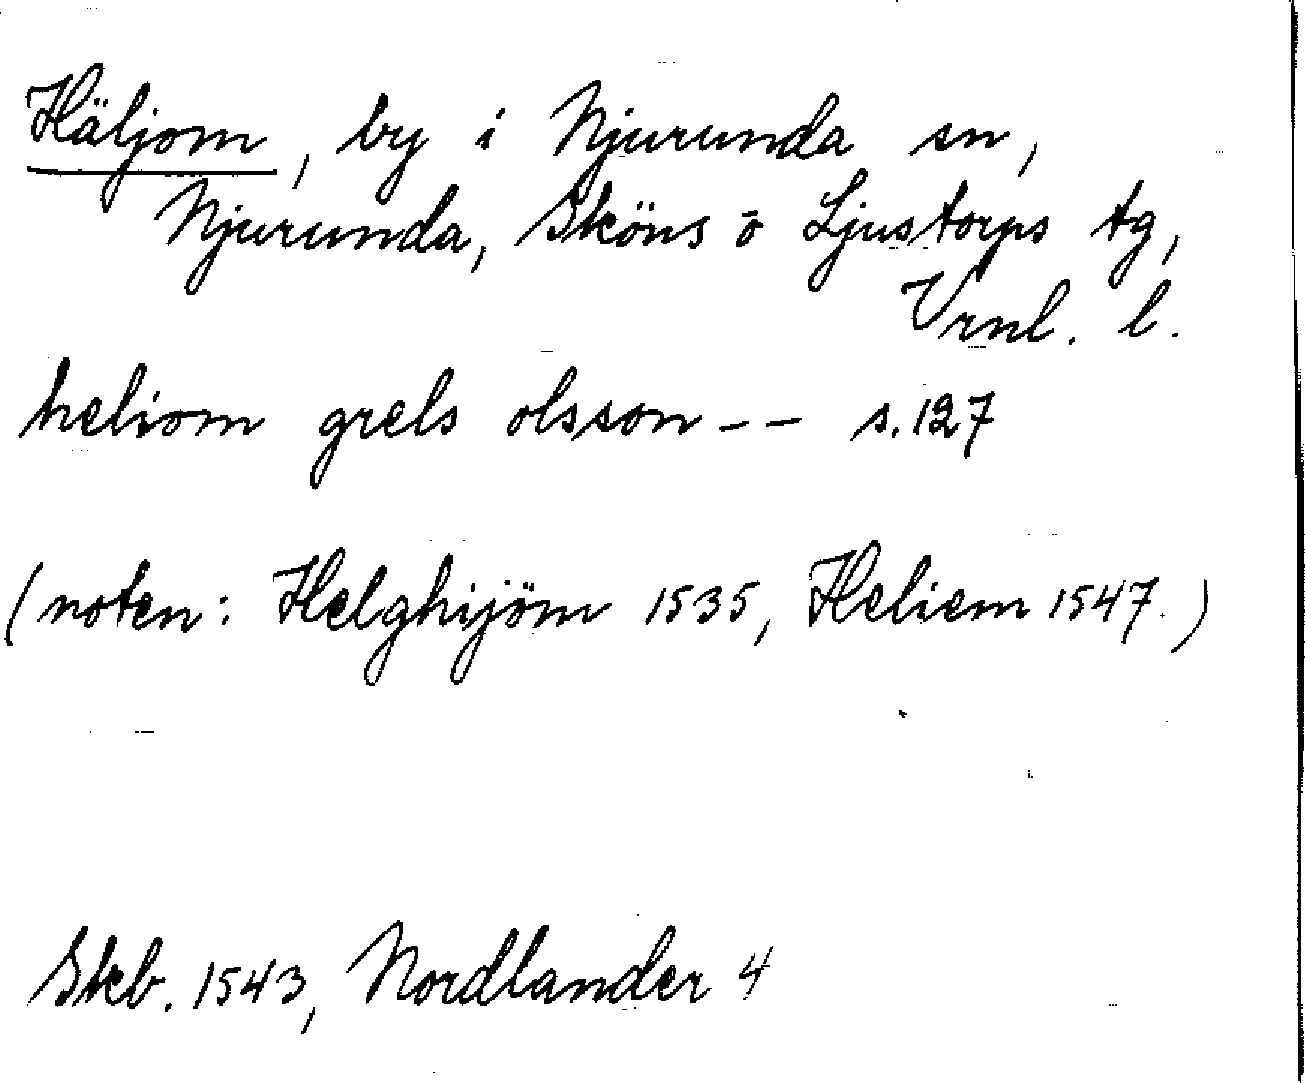 Häljom, by i Njurunda sn,
Njurunda, Sköns o Ljustorps tg,
Vrnl. l.
heliom grels olsson -- s. 127
(noten: Helghijöm 1535, Heliem 1547.)
Skb. 1543, Nordlander 4